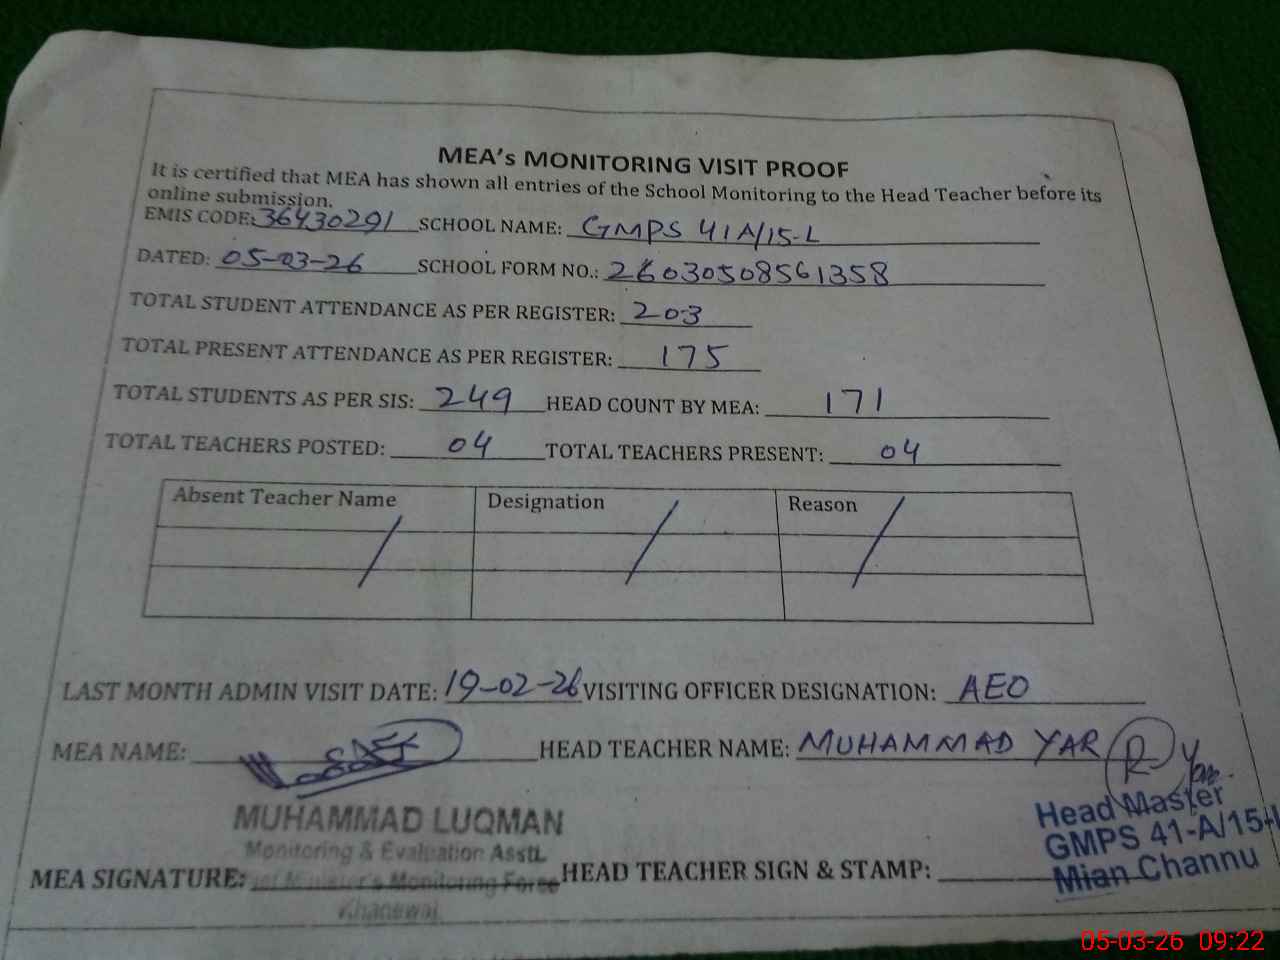 MEA's MONITORING VISIT PROOF
It is certified that MEA has shown all entries of the School Monitoring to the Head Teacher before its
online submission.
EMIS CODE: 36430291 SCHOOL NAME: GMPS 41A/15-L
DATED: 05-03-26 SCHOOL FORM NO.: 26030508561358
TOTAL STUDENT ATTENDANCE AS PER REGISTER: 203
TOTAL PRESENT ATTENDANCE AS PER REGISTER: 175
TOTAL STUDENTS AS PER SIS: 249 HEAD COUNT BY MEA: 171
TOTAL TEACHERS POSTED: 04 TOTAL TEACHERS PRESENT: 04
Absent Teacher Name Designation Reason
LAST MONTH ADMIN VISIT DATE: 19-02-26 VISITING OFFICER DESIGNATION: AEO
MEA NAME: HEAD TEACHER NAME: MUHAMMAD YAR
MUHAMMAD LUQMAN
Monitoring & Evaluation Asstt.
Minister's Monitoring Force
Khanewal
MEA SIGNATURE: HEAD TEACHER SIGN & STAMP:
Head Master
GMPS 41-A/15-L
Mian Channu
05-03-26 09:22